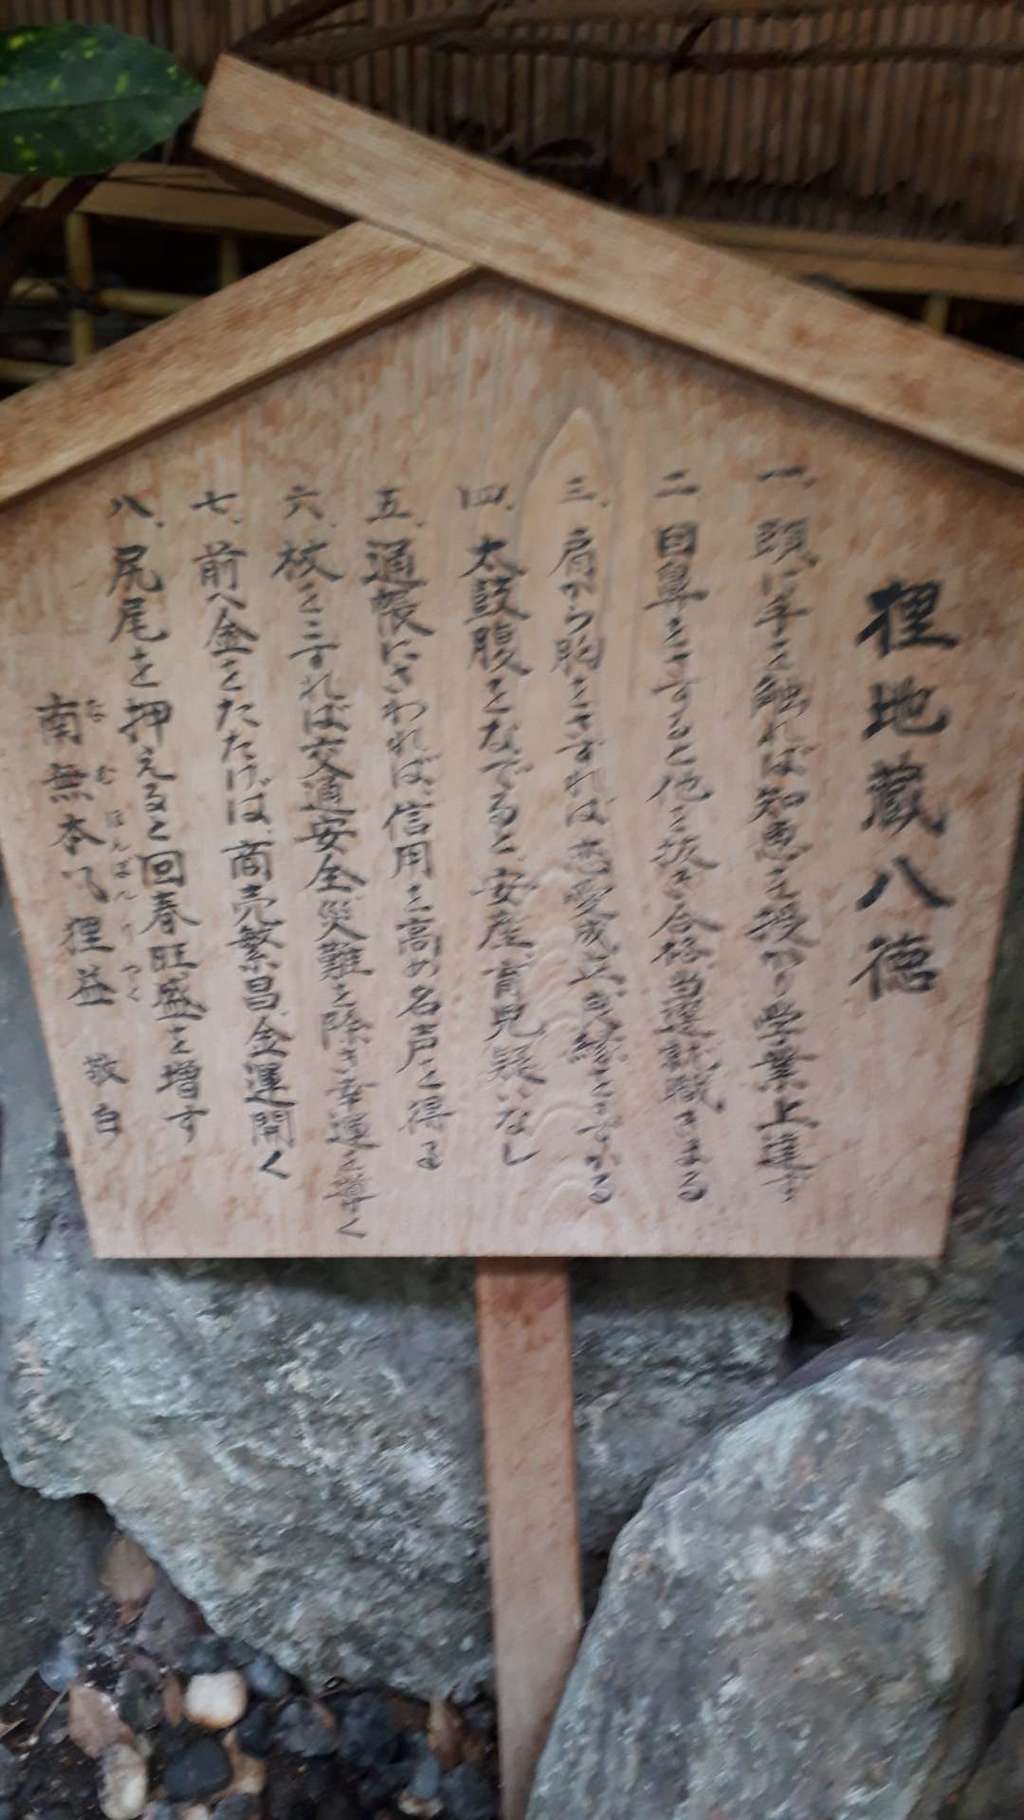 狸地蔵八徳
一、頭に手を触れば知恵を授かり学業上達す
二、目鼻をさすると他を抜き合格当選就職きまる
三、肩から胸をさすれば恋愛成立良縁をさずかる
四、太鼓腹をなでると、安産、育児疑いなし
五、通帳にさわれば、信用を高め名声を得る
六、杖をこすれば交通安全、災難を除き幸運を導く
七、前へ金をたたけば、商売繁昌、金運開く
八、尻尾を押えると回春旺盛を増す
南無本 狸益 敬白
なむほんぽんりやく